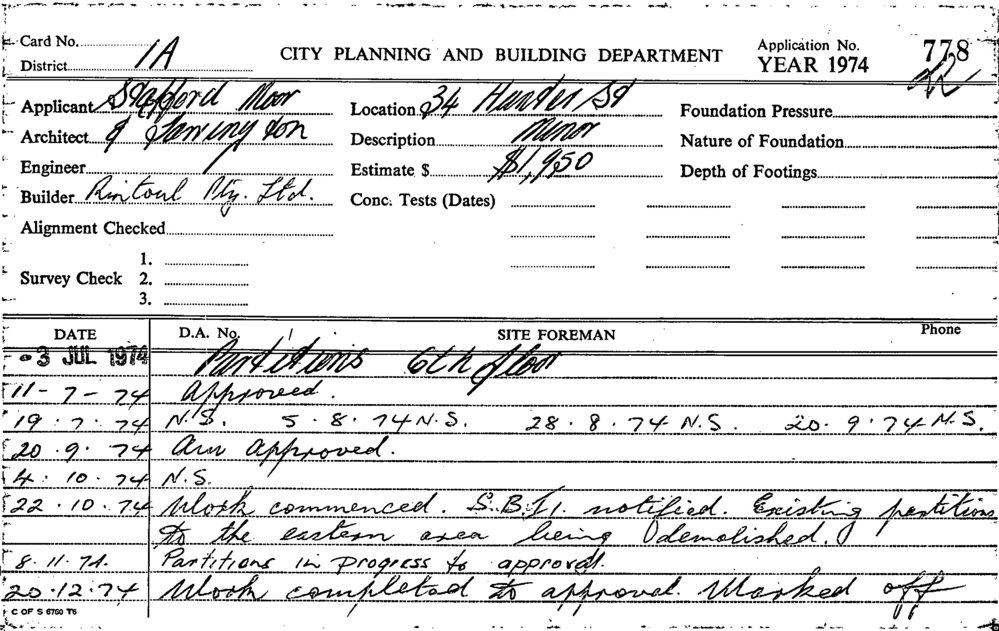 Card No. 1A
District
CITY PLANNING AND BUILDING DEPARTMENT
Application No. 778
YEAR 1974
Applicant Stafford Moor
Location 34 Hunter St
Foundation Pressure
Architect & Farrington
Description Minor
Nature of Foundation
Engineer
Estimate $ $1,950
Depth of Footings
Builder Rintoul Pty. Ltd.
Conc. Tests (Dates)
Alignment Checked
Survey Check 1.
2.
3.
DATE D.A. No. SITE FOREMAN Phone
-3 JUL 1974 Partitions 6th floor
11-7-74 Approved.
19.7.74 N.S. 5.8.74 N.S. 28.8.74 N.S. 20.9.74 N.S.
20.9.74 Am Approved.
4.10.74 N.S.
22.10.74 Work commenced. S.B.I. notified. Existing partitions
to the eastern area being demolished.
8.11.74. Partitions in progress to approval.
20.12.74 Work completed to approval. Marked off
C OF S 6760 T6